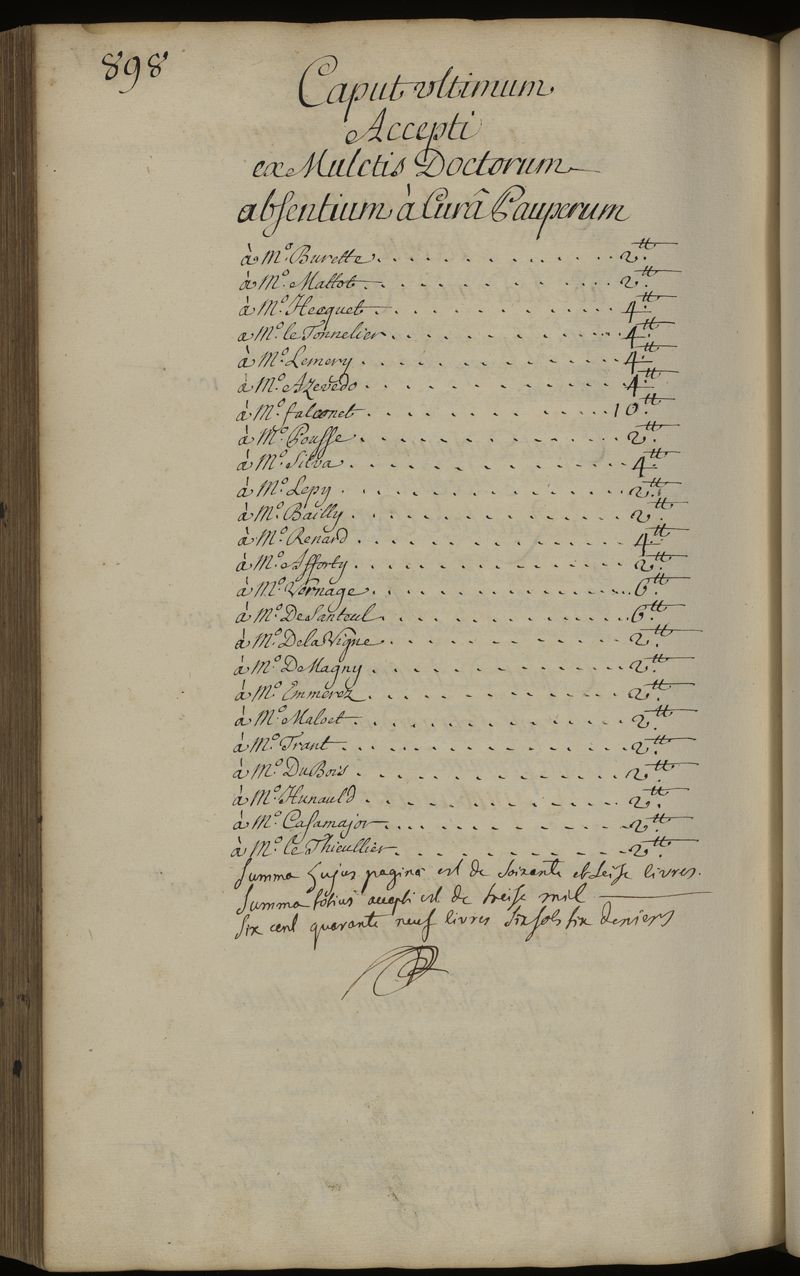 898
Caput vltimum
Accepti
ex Mulctis Doctorum
absentium à Curâ Pauperum
à Mº. Burette . . . . . . . . . . . . 2.tt
à Mº. Mattot . . . . . . . . . . . . 2.tt
à Mº. Hecquet . . . . . . . . . . . . 4.tt
a Mº. le Tonnelier . . . . . . . . . . . . 4.tt
à Mº. Lemery . . . . . . . . . . . . 4.tt
à Mº. Azevedo . . . . . . . . . . . . 4.tt
à Mº. falconet . . . . . . . . . . . . 10.tt
à Mº. Pousse . . . . . . . . . . . . 2.tt
à Mº. Silva . . . . . . . . . . . . 4.tt
à Mº. Lepy . . . . . . . . . . . . 2.tt
à Mº. Bailly . . . . . . . . . . . . 2.tt
à Mº. Renard . . . . . . . . . . . . 4.tt
à Mº. Afforty . . . . . . . . . . . . 2.tt
à Mº. Vernage . . . . . . . . . . . . 6.tt
à Mº. De Santeul . . . . . . . . . . . . 6.tt
à Mº. Dela Vigne . . . . . . . . . . . . 2.tt
à Mº. De Magny . . . . . . . . . . . . 2.tt
à Mº. Emmerez . . . . . . . . . . . . 2.tt
à Mº. Maloet . . . . . . . . . . . . 2.tt
à Mº. Trant . . . . . . . . . . . . 2.tt
à Mº. Du Bois . . . . . . . . . . . . 2.tt
à Mº. Hunauld . . . . . . . . . . . . 2.tt
à Mº. Casamajor . . . . . . . . . . . . 2.tt
à Mº. le Thieullier . . . . . . . . . . . . 2.tt
Summa hujus paginæ est de soixante et seise livres.
Summa totius accepti est de treise mil
six cent quarante neuf livres six sols six deniers